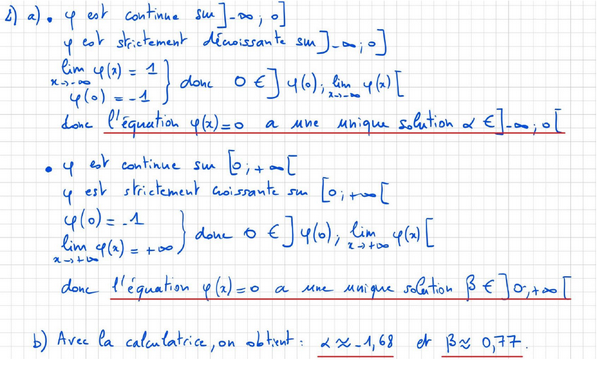 2) a) • φ est continue sur ]-∞ ; 0]
φ est strictement décroissante sur ]-∞ ; 0]
lim φ(x) = 1
x→-∞
φ(0) = -1
} donc 0 ∈ ] φ(0) ; lim φ(x) [
x→-∞
donc l'équation φ(x) = 0 a une unique solution α ∈ ]-∞ ; 0 [
• φ est continue sur [0 ; +∞[
φ est strictement croissante sur [0 ; +∞[
φ(0) = -1
lim φ(x) = +∞
x→+∞
} donc 0 ∈ ] φ(0) ; lim φ(x) [
x→+∞
donc l'équation φ(x) = 0 a une unique solution β ∈ ] 0 ; +∞ [
b) Avec la calculatrice, on obtient : α ≈ -1,68 et β ≈ 0,77.